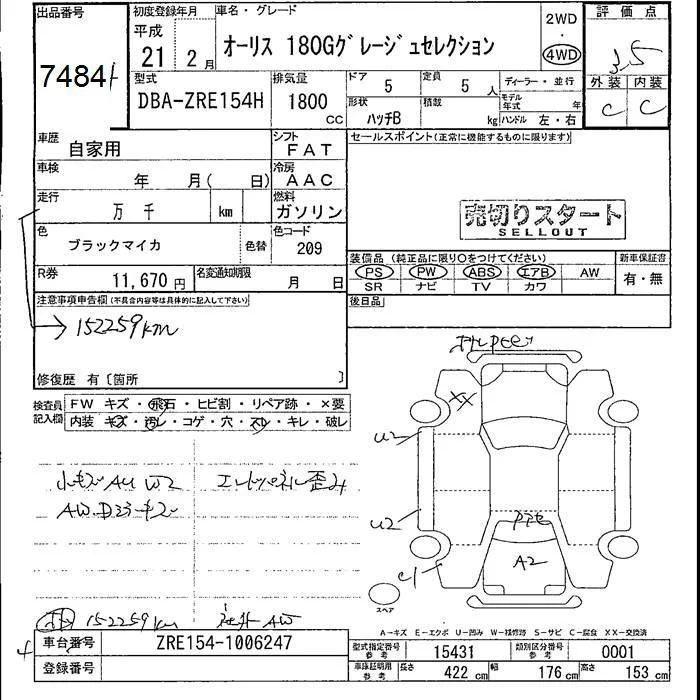 出品番号 初度登録年月 車名・グレード 2WD 評価点
7484
平成 21年 2月 オーリス 180Gグレージュセレクション ・ 4WD 3.5
型式 排気量 ドア 定員 ディーラー・並行 外装 内装
DBA-ZRE154H 1800 CC 5 5人 モデル年式 年 C C
形状 積載
ハッチB kg ハンドル 左・右
車歴 自家用 シフト FAT セールスポイント(正常に機能するものに限ります)
車検 年 月( 日) 冷房 AAC
走行 万 千 km 燃料 ガソリン
売切りスタート
SELLOUT
色 ブラックマイカ 色替 色コード 209
装備品(純正品に限り○をつけてください) 新車保証書
PS PW ABS エアB AW 有・無
SR ナビ TV カワ
R券 11,670円 名変通知期限 月 日
後日品
注意事項申告欄(不具合内容等は具体的に記入して下さい)
→ 152259km
修復歴 有〔箇所 〕
検査員記入欄 FW キズ・飛石・ヒビ割・リペア跡・×要
内装 キズ・汚レ・コゲ・穴・スレ・キレ・破レ
XX
U2
U2
C1
A2
スペア
小キズAU W2
AW.D
152259km 社外AW
A-キズ E-エクボ U-凹み W-補修跡 S-サビ C-腐食 XX-交換済
車台番号 ZRE154-1006247
型式指定番号 参考 15431 類別区分番号 参考 0001
登録番号
車庫証明用 参考 長さ 422 cm 幅 176 cm 高さ 153 cm